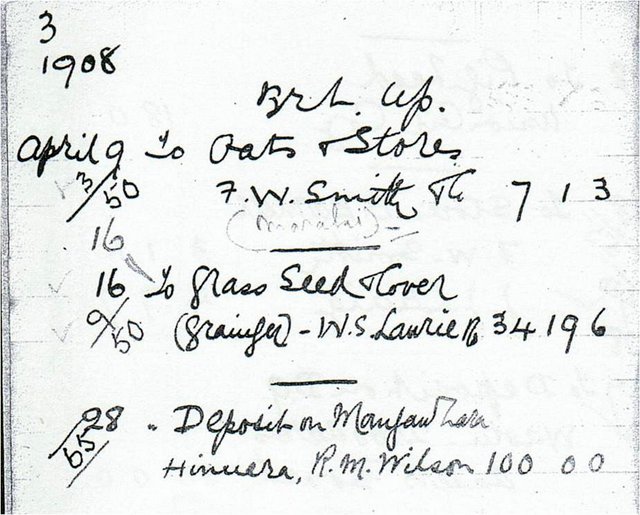 3
1908
Brt. Up.
April 9 To Oats & Stores
3/50 F. W. Smith 7 1 3
(Morahai)
16
16 To Grass Seed Clover
9/50 (Grainger) - W.S. Laurie 34 19 6
28 " Deposit on Mangawhara
65 Hinuera, R. M. Wilson 100 0 0